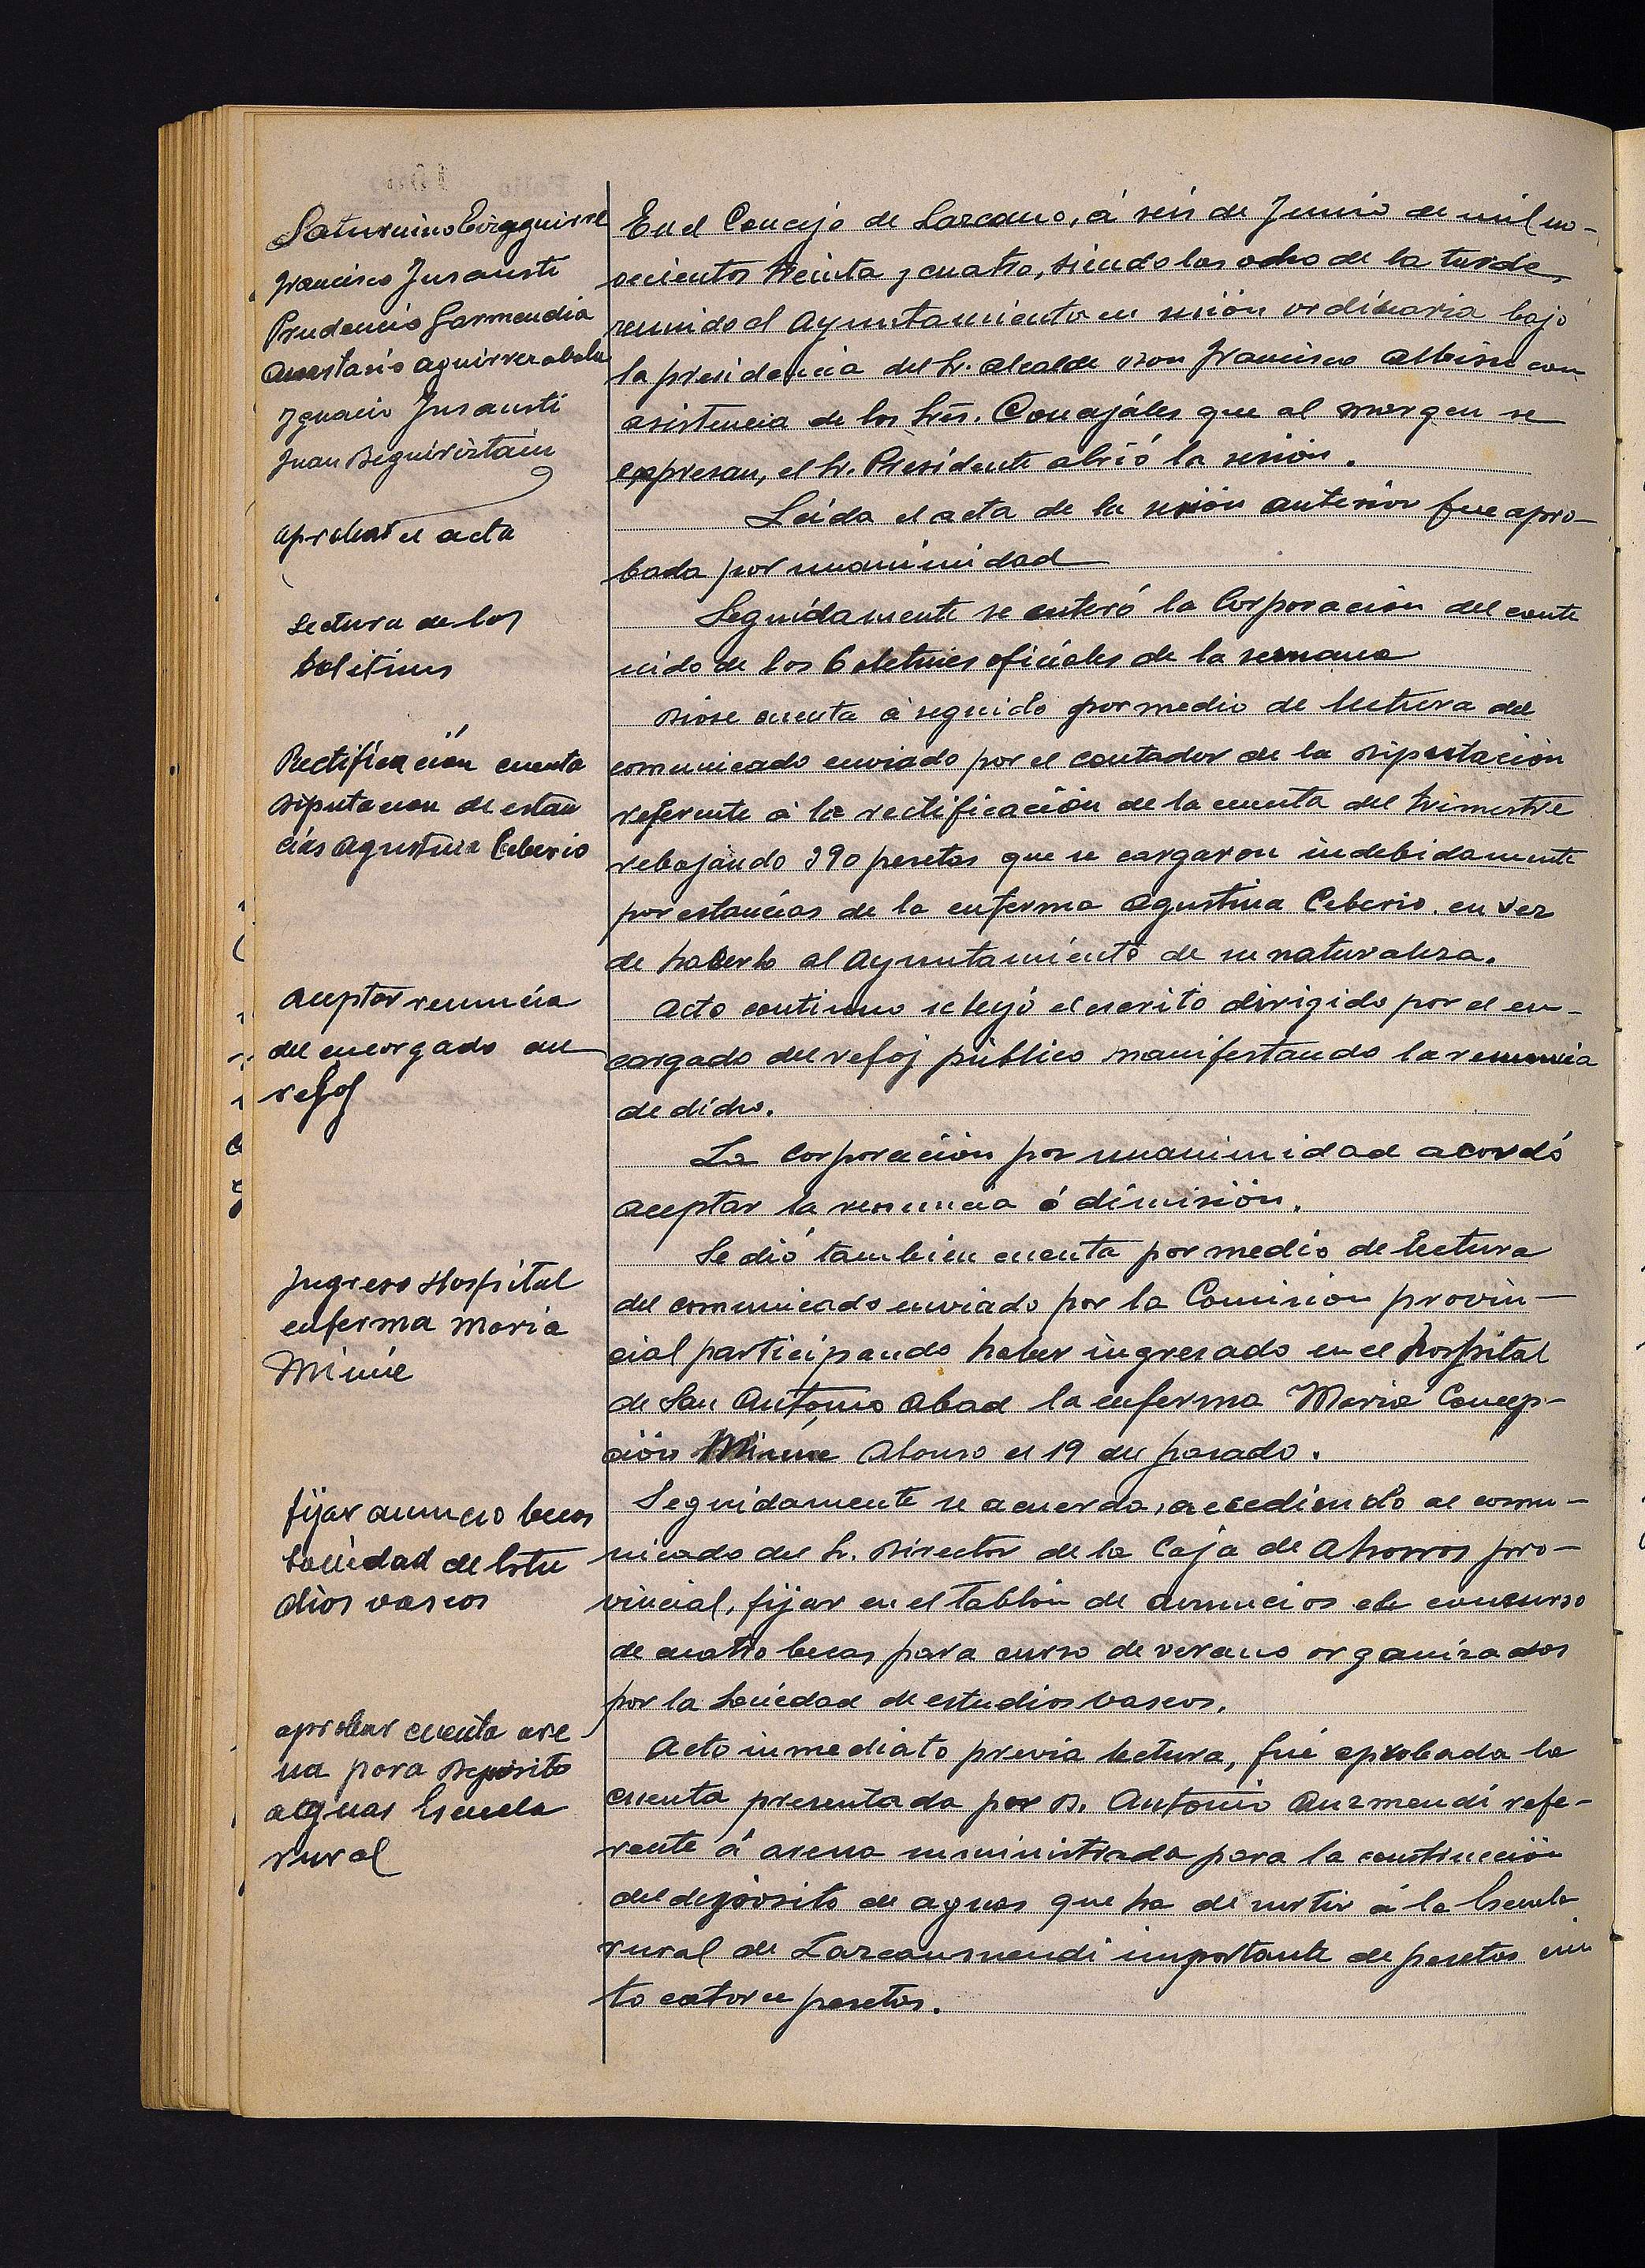 Saturnino Eizaguirre
Francisco Insausti
Prudencio Garmendia
Anastasio Aguirrezabala
Ignacio Insausti
Juan Beguiristain
aprobar el acta
Lectura de los
boletines
Rectificación cuenta
Diputacion de estan
cias Agustina Ceberio
Aceptar renuncia
del encargado del
reloj
Ingreso Hospital
enferma Maria
fijar anuncio becas
Sociedad de Estu
dios vascos
aprobar cuenta are
na para Deposito
aguas Escuela
rural
En el Concejo de Lazcano, á seis de Junio de mil no-
vecientos treinta y cuatro, siendo las ocho de la tarde,
reunido el Ayuntamiento en sesión ordinaria bajo
la presidencia del Sr. Alcalde Don Francisco Albisu con
asistencia de los Srs. Concejáles que al margen se
expresan, el Sr. Presidente abrió la sesión.
Leida el acta de la sesión anterior fue apro-
bada por unanimidad
Seguidamente se enteró la Corporación del conte
nido de los Boletines oficiales de la semana
Dióse cuenta á seguido por medio de lectura del
comunicado enviado por el contador de la Diputación
referente á la rectificación de la cuenta del trimestre
rebajando 390 pesetas que se cargaron indebidamente
por estancias de la enferma Agustina Ceberio en vez
de haberlo al Ayuntamiento de su naturaleza.
Acto continuo se leyó el escrito dirigido por el en-
cargado del reloj público manifestando la renuncia
de dicho.
La Corporación por unanimidad acordó
aceptar la renuncia ó dimisión.
Se dió tambien cuenta por medio de lectura
del comunicado enviado por la Comision provin-
cial participando haber ingresado en el hospital
de San Antonio Abad la enferma Maria Concep-
ción Alonso el 19 del pasado.
Seguidamente se acuerda, accediendo al comu-
nicado del Sr. Director de la Caja de Ahorros pro-
vincial, fijar en el tablón de anuncios el concurso
de cuatro becas para curso de verano organizados
por la Sociedad de estudios vascos.
Acto inmediato previa lectura, fué aprobada la
cuenta presentada por D. Antonio Auzmendi refe-
rente á arena suministrada para la construcción
del depósito de aguas que ha de surtir á la Escuela
rural de Lazcaumendi importante de pesetas cien
to catorce pesetas.